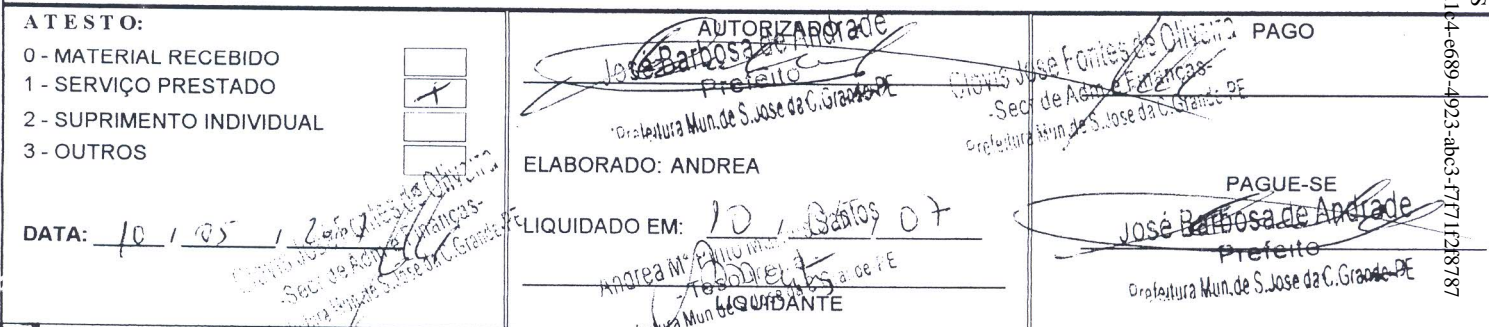 ATESTO:
0 - MATERIAL RECEBIDO
1 - SERVIÇO PRESTADO
2 - SUPRIMENTO INDIVIDUAL
3 - OUTROS
Clovis José Fontes de Oliveira
-Secr de Adm e Finanças-
DATA: 10 / 05 /
AUTORIZADO
José Barbosa de Andrade
Prefeito
Prefeitura Mun.de S.Jose da C.Grande-PE
ELABORADO: ANDREA
LIQUIDADO EM: 10 / / 07
Andrea Mª Santos
- Tesoureira -
LIQUIDANTE
PAGO
Clovis José Fontes de Oliveira
-Secr de Adm e Finanças-
Prefeitura Mun.de S.Jose da C.Grande-PE
PAGUE-SE
José Barbosa de Andrade
Prefeito
Prefeitura Mun.de S.Jose da C.Grande-PE
1c4-e689-4923-abc3-f7f71f2f8787